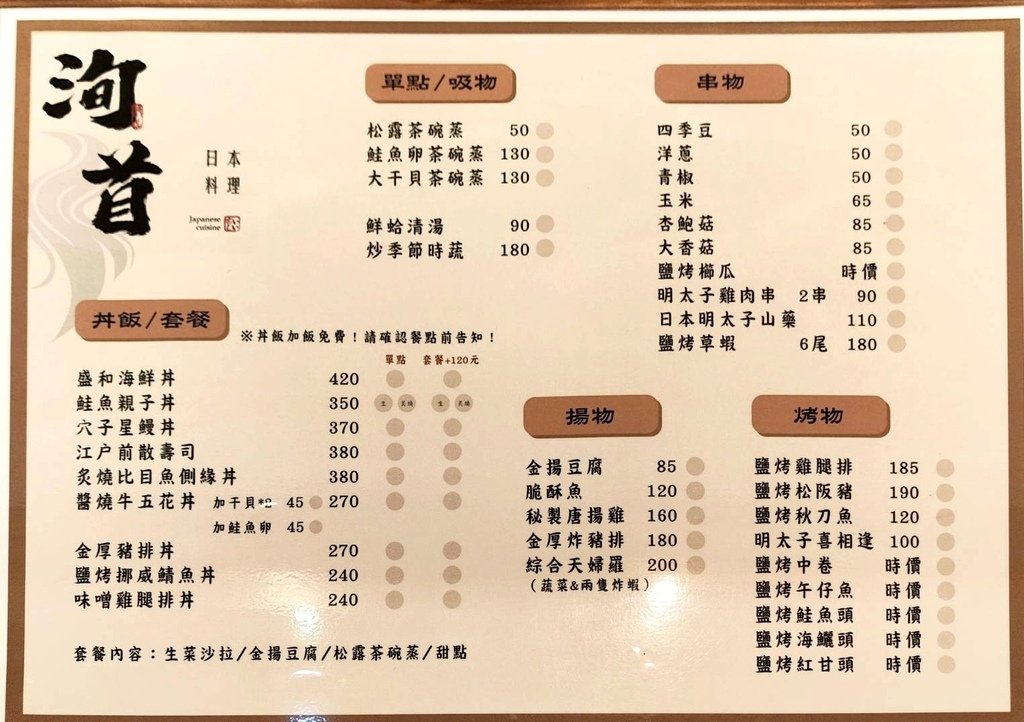 洵首
日本
料理
Japanese
cuisine
單點/吸物
松露茶碗蒸 50
鮭魚卵茶碗蒸 130
大干貝茶碗蒸 130
鮮蛤清湯 90
炒季節時蔬 180
串物
四季豆 50
洋蔥 50
青椒 50
玉米 65
杏鮑菇 85
大香菇 85
鹽烤櫛瓜 時價
明太子雞肉串 2串 90
日本明太子山藥 110
鹽烤草蝦 6尾 180
丼飯/套餐
※丼飯加飯免費！請確認餐點前告知！
單點 套餐+120元
盛和海鮮丼 420
鮭魚親子丼 350 生 炙燒 生 炙燒
穴子星鰻丼 370
江户前散壽司 380
炙燒比目魚側緣丼 380
醬燒牛五花丼 加干貝*2 45 270
加鮭魚卵 45
金厚豬排丼 270
鹽烤挪威鯖魚丼 240
味噌雞腿排丼 240
套餐內容：生菜沙拉/金揚豆腐/松露茶碗蒸/甜點
揚物
金揚豆腐 85
脆酥魚 120
秘製唐揚雞 160
金厚炸豬排 180
綜合天婦羅 200
（蔬菜&兩隻炸蝦）
烤物
鹽烤雞腿排 185
鹽烤松阪豬 190
鹽烤秋刀魚 120
明太子喜相逢 100
鹽烤中卷 時價
鹽烤午仔魚 時價
鹽烤鮭魚頭 時價
鹽烤海鱺頭 時價
鹽烤紅甘頭 時價